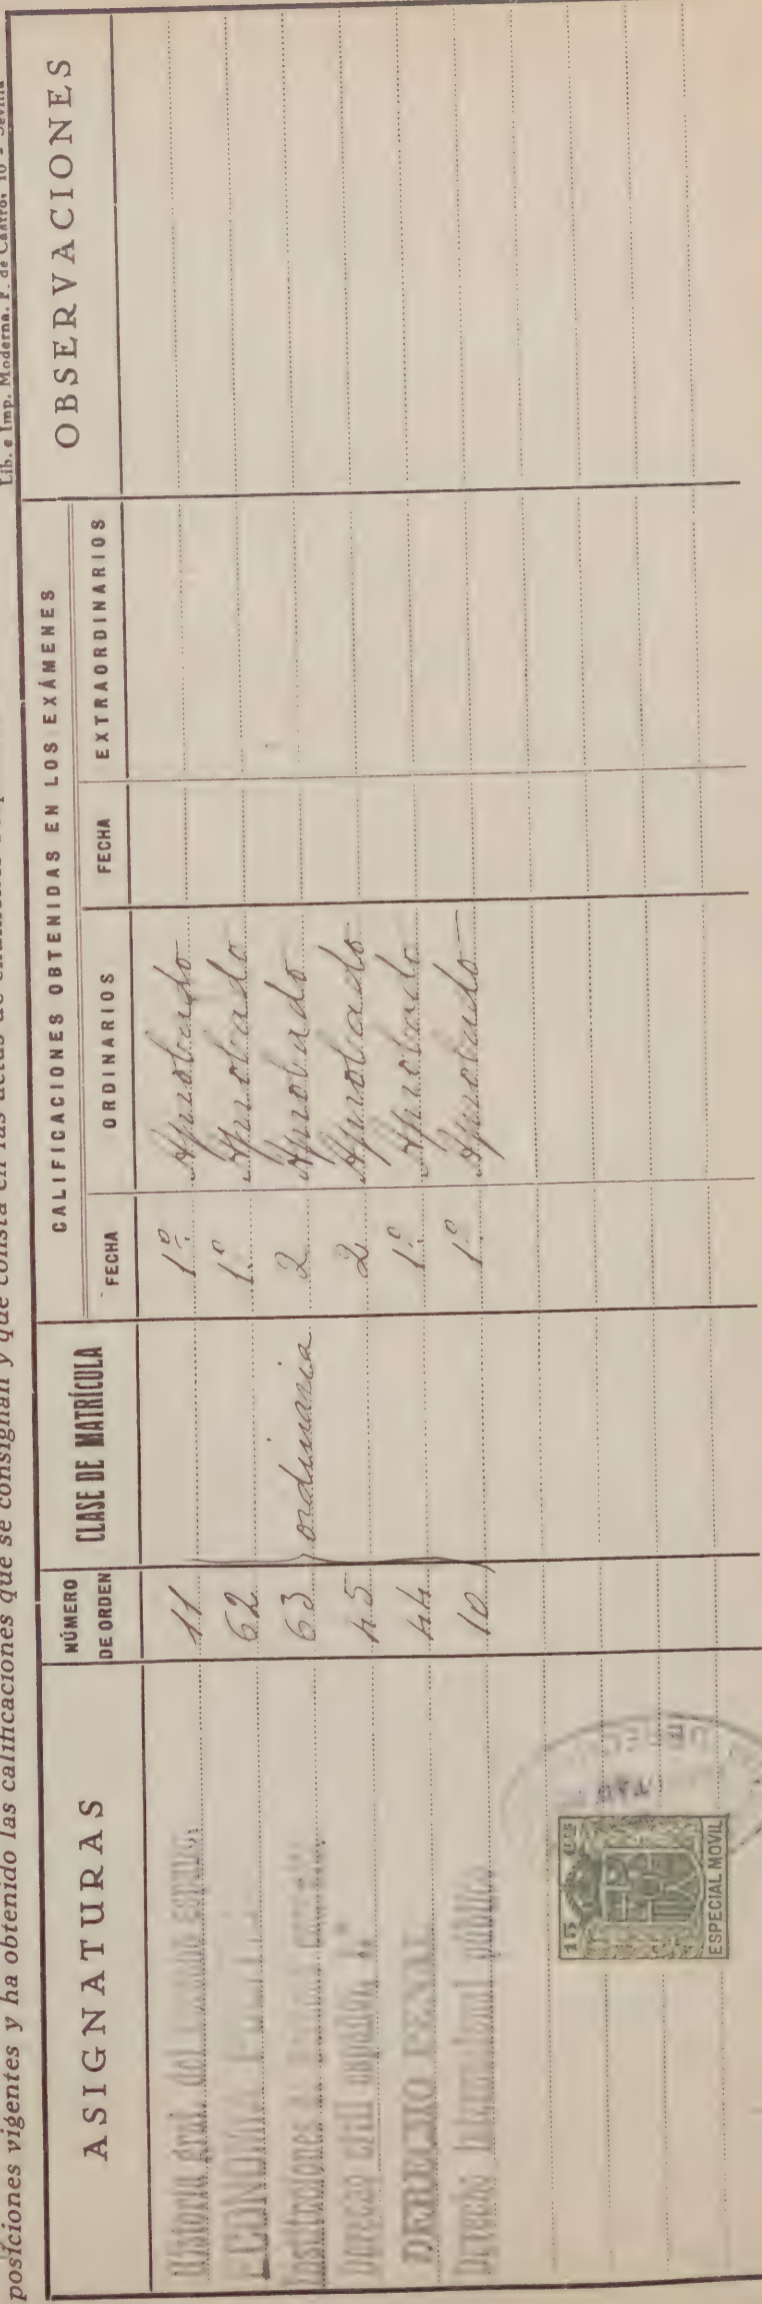 Lib. e Imp. Moderna. F. de Castro, 10 - Sevilla
posiciones vigentes y ha obtenido las calificaciones que se consignan y que consta en las actas de
ASIGNATURAS
NÚMERO DE ORDEN
CLASE DE MATRÍCULA
CALIFICACIONES OBTENIDAS EN LOS EXÁMENES
FECHA
ORDINARIOS
FECHA
EXTRAORDINARIOS
OBSERVACIONES
Historia gral. del 11 1.º Aprobado
ECONOMIA 62 1.º Aprobado
Instituciones 63 ordinaria 2 Aprobado
Derecho civil español, 1.º 45 2 Aprobado
DERECHO PENAL 44 1.º Aprobado
Derecho internacional público 10 1.º Aprobado
15 Cts
ESPECIAL MOVIL